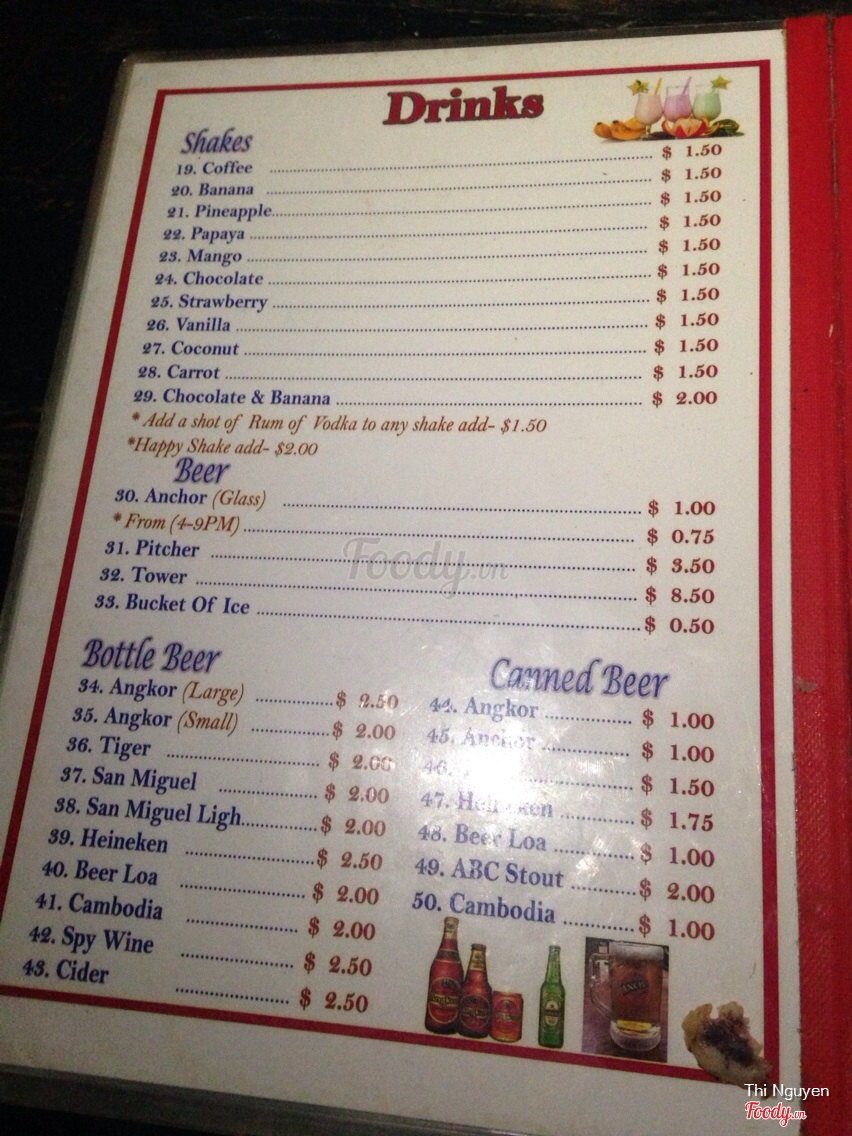 Drinks
Shakes
19. Coffee $ 1.50
20. Banana $ 1.50
21. Pineapple $ 1.50
22. Papaya $ 1.50
23. Mango $ 1.50
24. Chocolate $ 1.50
25. Strawberry $ 1.50
26. Vanilla $ 1.50
27. Coconut $ 1.50
28. Carrot $ 1.50
29. Chocolate & Banana $ 2.00
* Add a shot of Rum of Vodka to any shake add- $1.50
*Happy Shake add- $2.00
Beer
30. Anchor (Glass) $ 1.00
* From (4-9PM) $ 0.75
31. Pitcher $ 3.50
32. Tower $ 8.50
33. Bucket Of Ice $ 0.50
Bottle Beer
34. Angkor (Large) $ 2.50
35. Angkor (Small) $ 2.00
36. Tiger $ 2.00
37. San Miguel $ 2.00
38. San Miguel Ligh $ 2.00
39. Heineken $ 2.50
40. Beer Loa $ 2.00
41. Cambodia $ 2.00
42. Spy Wine $ 2.50
43. Cider $ 2.50
Canned Beer
44. Angkor $ 1.00
45. Anchor $ 1.00
46. $ 1.50
47. Heineken $ 1.75
48. Beer Loa $ 1.00
49. ABC Stout $ 2.00
50. Cambodia $ 1.00
Foody.vn
Thi Nguyen
Foody.vn